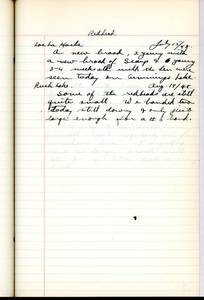 Redhead
July 17/48.
A new brood, 2 young with
a new brood of Scaup & 6 young
3-4 weeks old with the hen were
seen today on Cummings Lake
Rush Lake. Aug. 18/48.
Some of the redheads are still
quite small. We banded two
today still downy & only just
large enough for a # 6 band.